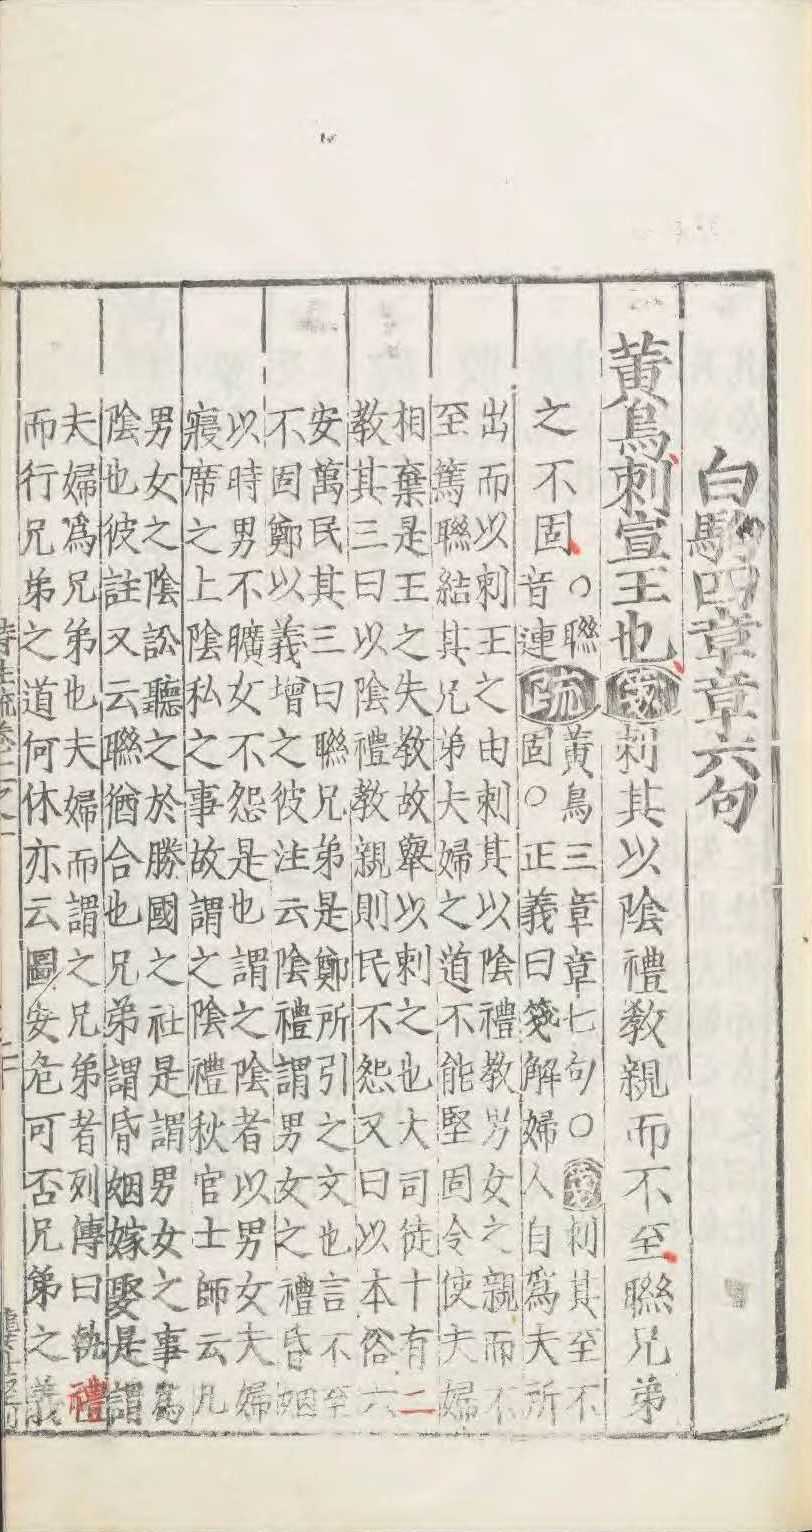 白駒四章章六句
黃鳥刺宣王也箋刺其以陰禮教親而不至聯兄弟
之不固
〇聯
音連
疏
黃鳥三章章七句〇箋刺其至不
固〇正義曰箋解婦人自爲夫所
出而以刺王之由刺其以陰禮教男女之親而不
至篤聯結其兄弟夫婦之道不能堅固令使夫婦
相棄是王之失教故舉以刺之也大司徒十有二
教其三曰以陰禮教親則民不怨又曰以本俗六
安萬民其三曰聯兄弟是鄭所引之文也言不至
不固鄭以義增之彼注云陰禮謂男女之禮昏姻
以時男不曠女不怨是也謂之陰者以男女夫婦
寢席之上陰私之事故謂之陰禮秋官士師云凡
男女之陰訟聽之於勝國之社是謂男女之事爲
陰也彼註又云聯猶合也兄弟謂昏姻嫁娶是謂
夫婦爲兄弟也夫婦而謂之兄弟者列傳曰執禮
而行兄弟之道何休亦云圖安危可否兄弟之義